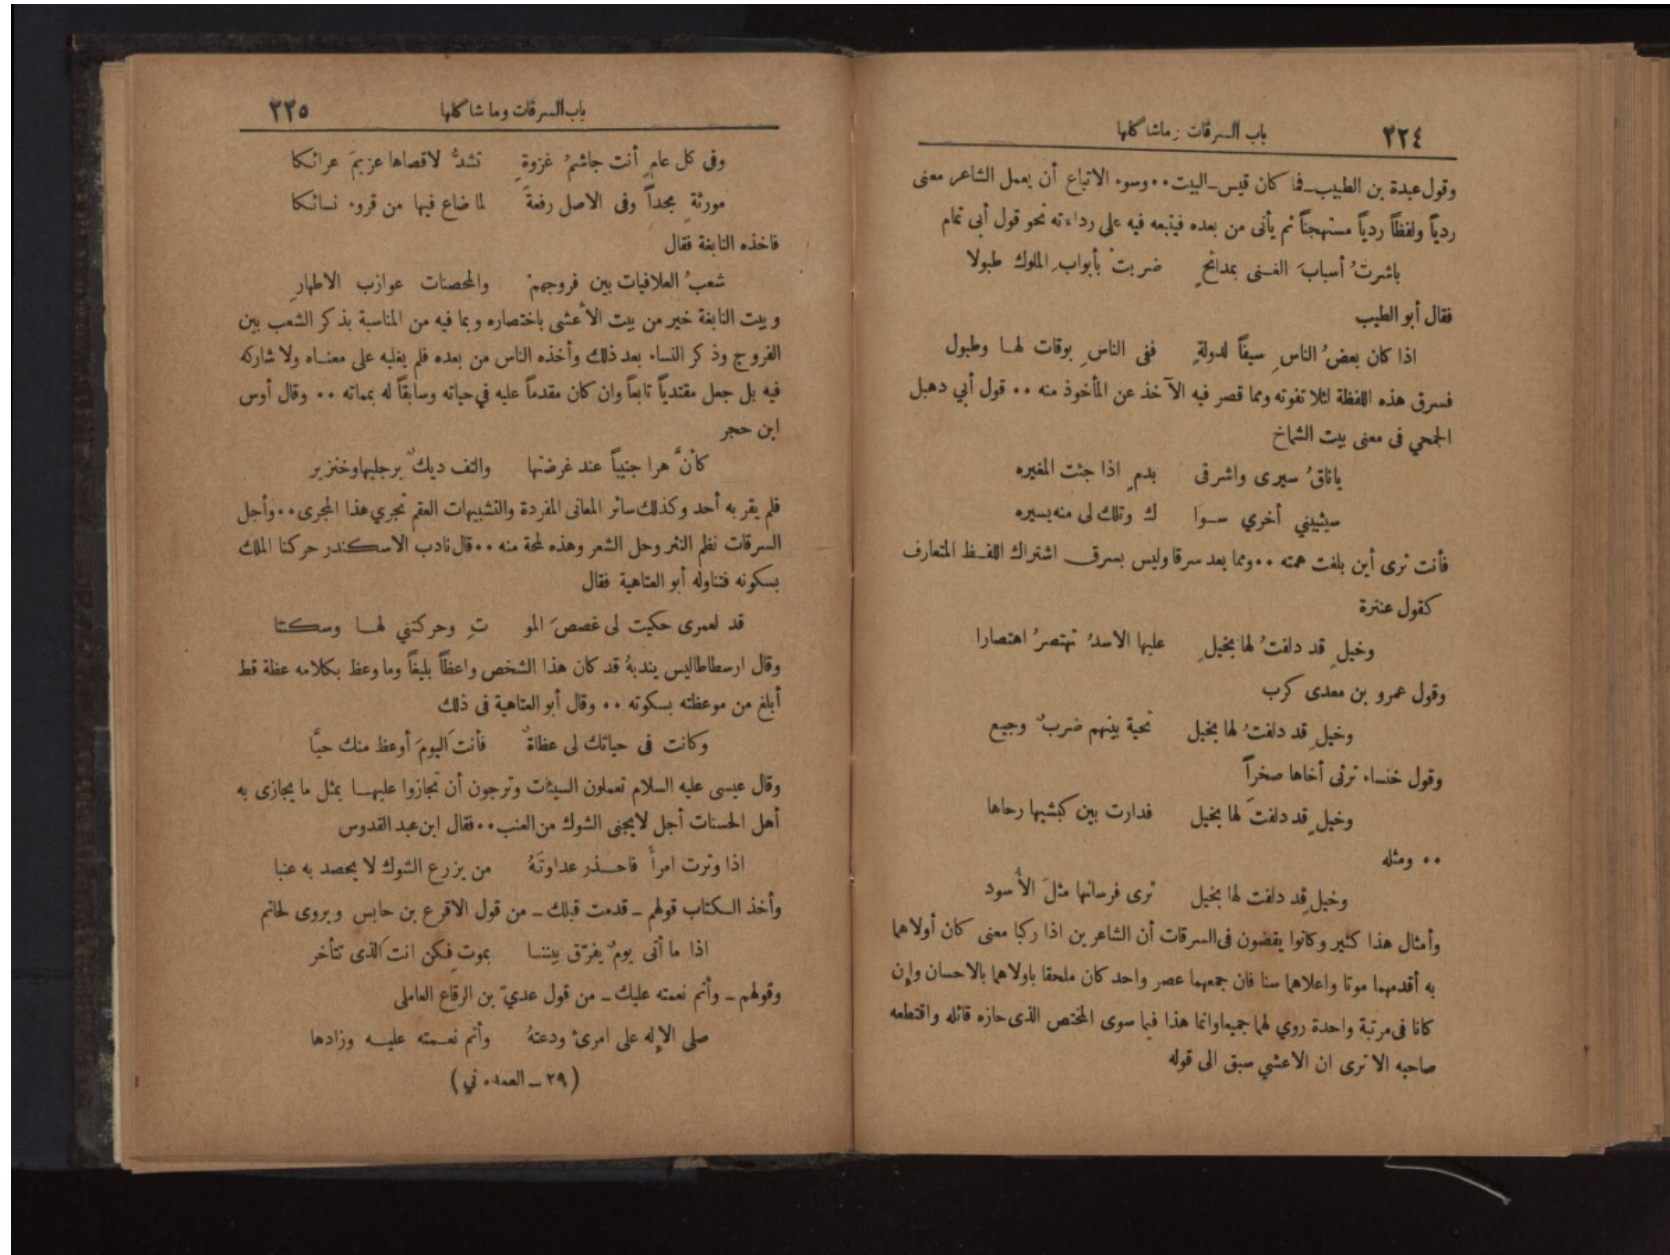 ٢٢٤
باب السرقات وماشاكلها
وقول عبدة بن الطبيب_فما كان قيس_البيت٠٠وسوء الاتباع أن يعمل الشاعر معنى
ردياً ولفظاً ردياً مستهجناً ثم يأتى من بعده فيتبعه فيه على رداءته نحو قول أبى تمام
باشرتُ أسبابَ الغنى بمدائحٍ ضربتْ بأبوابِ الملوك طبولا
فقال أبو الطيب
اذا كان بعضُ الناسِ سيفاً لدولةٍ ففى الناسِ بوقات لها وطبول
فسرق هذه اللفظة لئلا تفوته ومما قصر فيه الآخذ عن المأخوذ منه ٠٠ قول أبي دهبل
الجمحي فى معنى بيت الشماخ
ياناقُ سيرى واشرقى بدمٍ اذا جئت المغيره
سيثيبني أخري سوا ك وتلك لى منه يسيره
فأنت ترى أين بلغت همته ٠٠ومما يعد سرقا وليس بسرق اشتراك اللفظ المتعارف
كقول عنترة
وخيلٍ قد دلفتُ لها بخيلٍ عليها الاسدُ تهتصرُ اهتصارا
وقول عمرو بن معدى كرب
وخيلٍ قد دلفتُ لها بخيل تحية بينهم ضربٌ وجيع
وقول خنساء ترثى أخاها صخراً
وخيلٍ قد دلفتَ لها بخيل فدارت بين كبشيها رحاها
٠٠ ومثله
وخيلٍ قد دلفت لها بخيل ترى فرسانها مثلَ الأُسود
وأمثال هذا كثير وكانوا يقضون فى السرقات أن الشاعرين اذا ركبا معنى كان أولاهما
به أقدمهما موتا واعلاهما سنا فان جمعهما عصر واحد كان ملحقا باولاهما بالاحسان وإن
كانا فى مرتبة واحدة روي لهما جميعا وانما هذا فيما سوى المختص الذى حازه قائله واقتطعه
صاحبه الا ترى ان الاعشي سبق الى قوله
باب السرقات وما شاكلها
٢٢٥
وفى كل عامٍ أنت جاشمُ غزوةٍ تشدُّ لاقصاها عزيمَ عرائكا
مورثةٍ مجداً وفى الاصل رفعةً لما ضاع فيها من قروء نسائكا
فاخذه النابغة فقال
شعبُ العلافيات بين فروجهمْ والمحصنات عوازب الاطهارِ
وبيت النابغة خير من بيت الأعشى باختصاره وبما فيه من المناسبة بذكر الشعب بين
الفروج وذكر النساء بعد ذلك وأخذه الناس من بعده فلم يغلبه على معناه ولا شاركه
فيه بل جعل مقتدياً تابعاً وان كان مقدماً عليه في حياته وسابقاً له بمماته ٠٠ وقال أوس
ابن حجر
كأنَّ هرا جنيباً عند غرضتها والتف ديكٌ برجليها وخنزير
فلم يقربه أحد وكذلك سائر المعانى المفردة والتشبيهات العقم تجري هذا المجرى٠٠وأجل
السرقات نظم النثر وحل الشعر وهذه لمحة منه ٠٠قال نادب الاسكندر حركنا الملك
بسكونه فتناوله أبو العتاهية فقال
قد لعمرى حكيت لى غصصَ المو تِ وحركتني لها وسكنتا
وقال ارسطاطاليس يندبهُ قد كان هذا الشخص واعظاً بليغاً وما وعظ بكلامه عظة قط
أبلغ من موعظته بسكوته ٠٠ وقال أبو العتاهية فى ذلك
وكانت فى حياتك لى عظاةٌ فأنتَ اليومَ أوعظ منك حيَّا
وقال عيسى عليه السلام تعملون السيئات وترجون أن تجازوا عليها بمثل ما يجازى به
أهل الحسنات أجل لايجنى الشوك من العنب٠٠فقال ابن عبد القدوس
اذا وترت امرأً فاحذر عداوتَهُ من يزرع الشوك لا يحصد به عنبا
وأخذ الكتاب قولهم _ قدمت قبلك _ من قول الاقرع بن حابس ويروى لحاتم
اذا ما أتى يومٌ يفرّق بيننا بموتٍ فكن انتَ الذى تتأخر
وقولهم _ وأتم نعمته عليك _ من قول عديّ بن الرقاع العاملى
صلى الإله على امرئ ودعتهُ وأتم نعمته عليه وزادها
(٢٩ _ العمده ني)